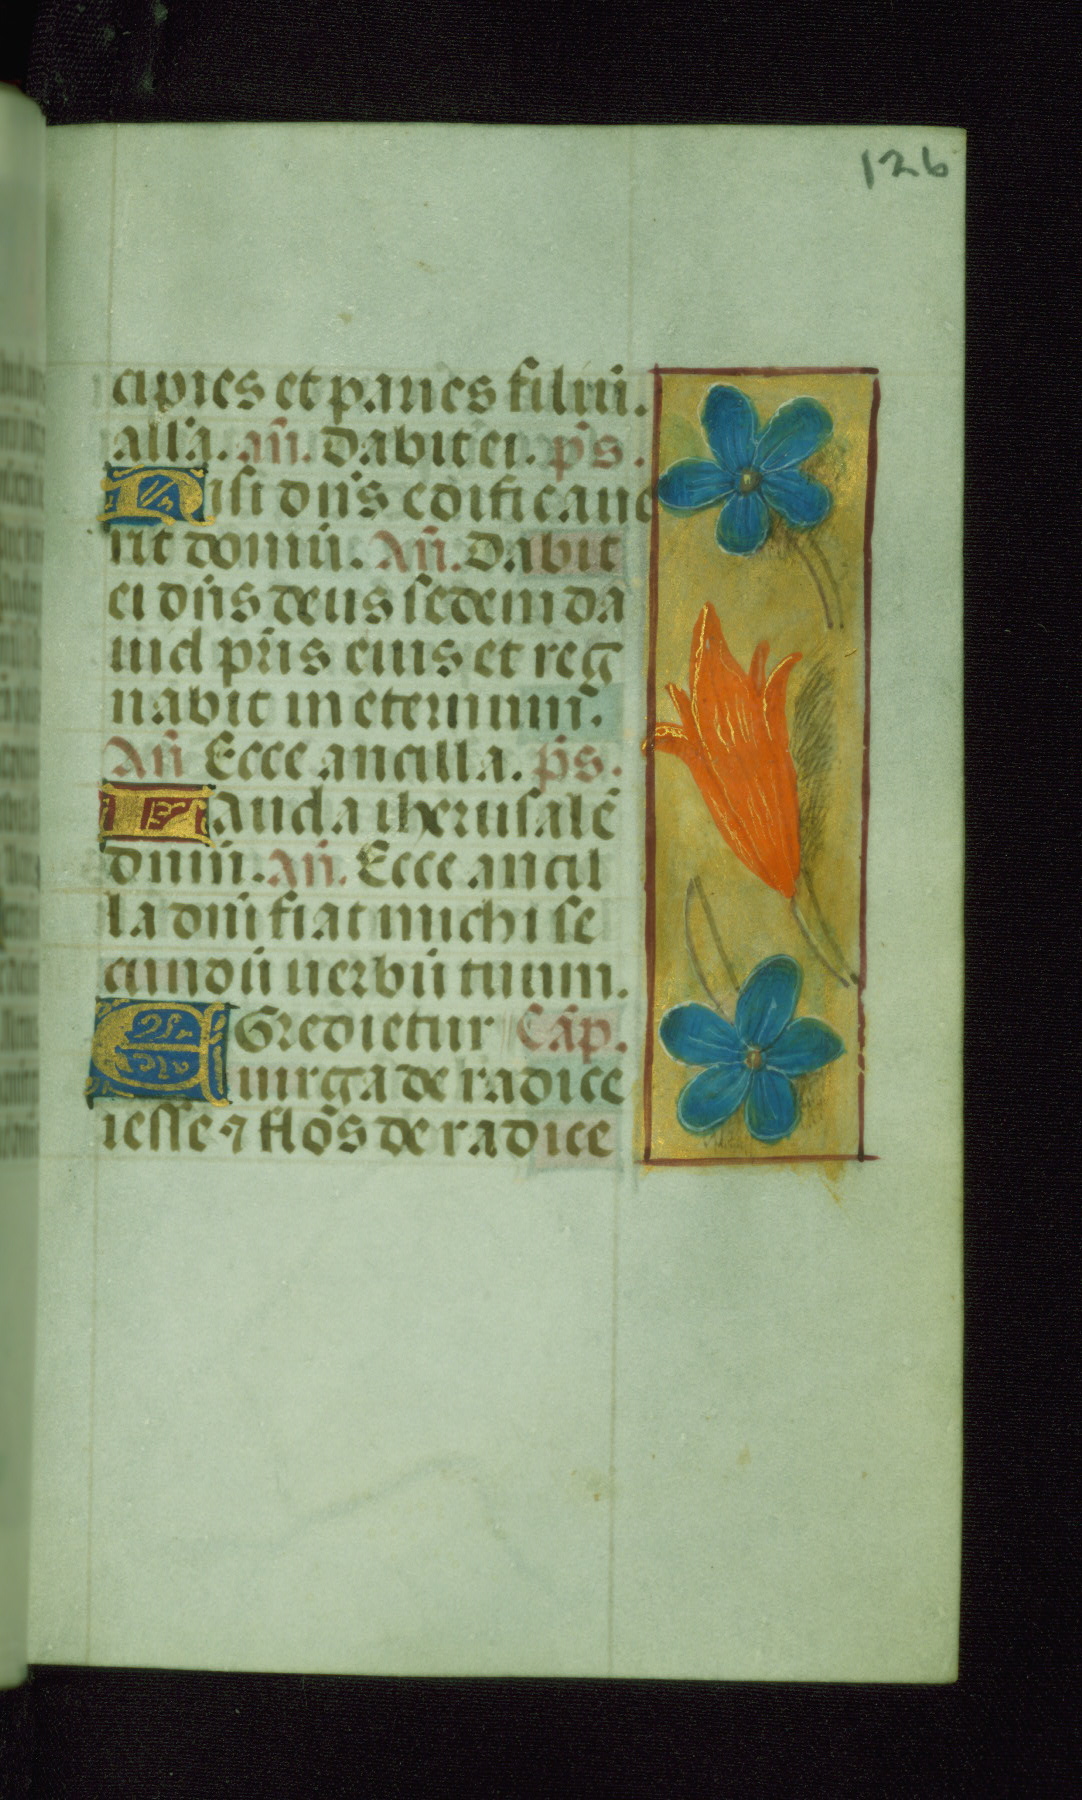 126
cipies et paries filiū.
all'a. añ. Dabit ei. p̄s.
Nisi dn̄s edificaue
rit domū. Añ. Dabit
ei dn̄s deus sedem da
uid p̄ris eius et reg
nabit in eternum.
Añ Ecce ancilla. p̄s.
Lauda iherusalē
dn̄m. Añ. Ecce ancil
la dn̄i fiat michi se
cundū uerbū tuum.
EGredietur Cap̄.
uirga de radice
iesse ⁊ flōs de radice